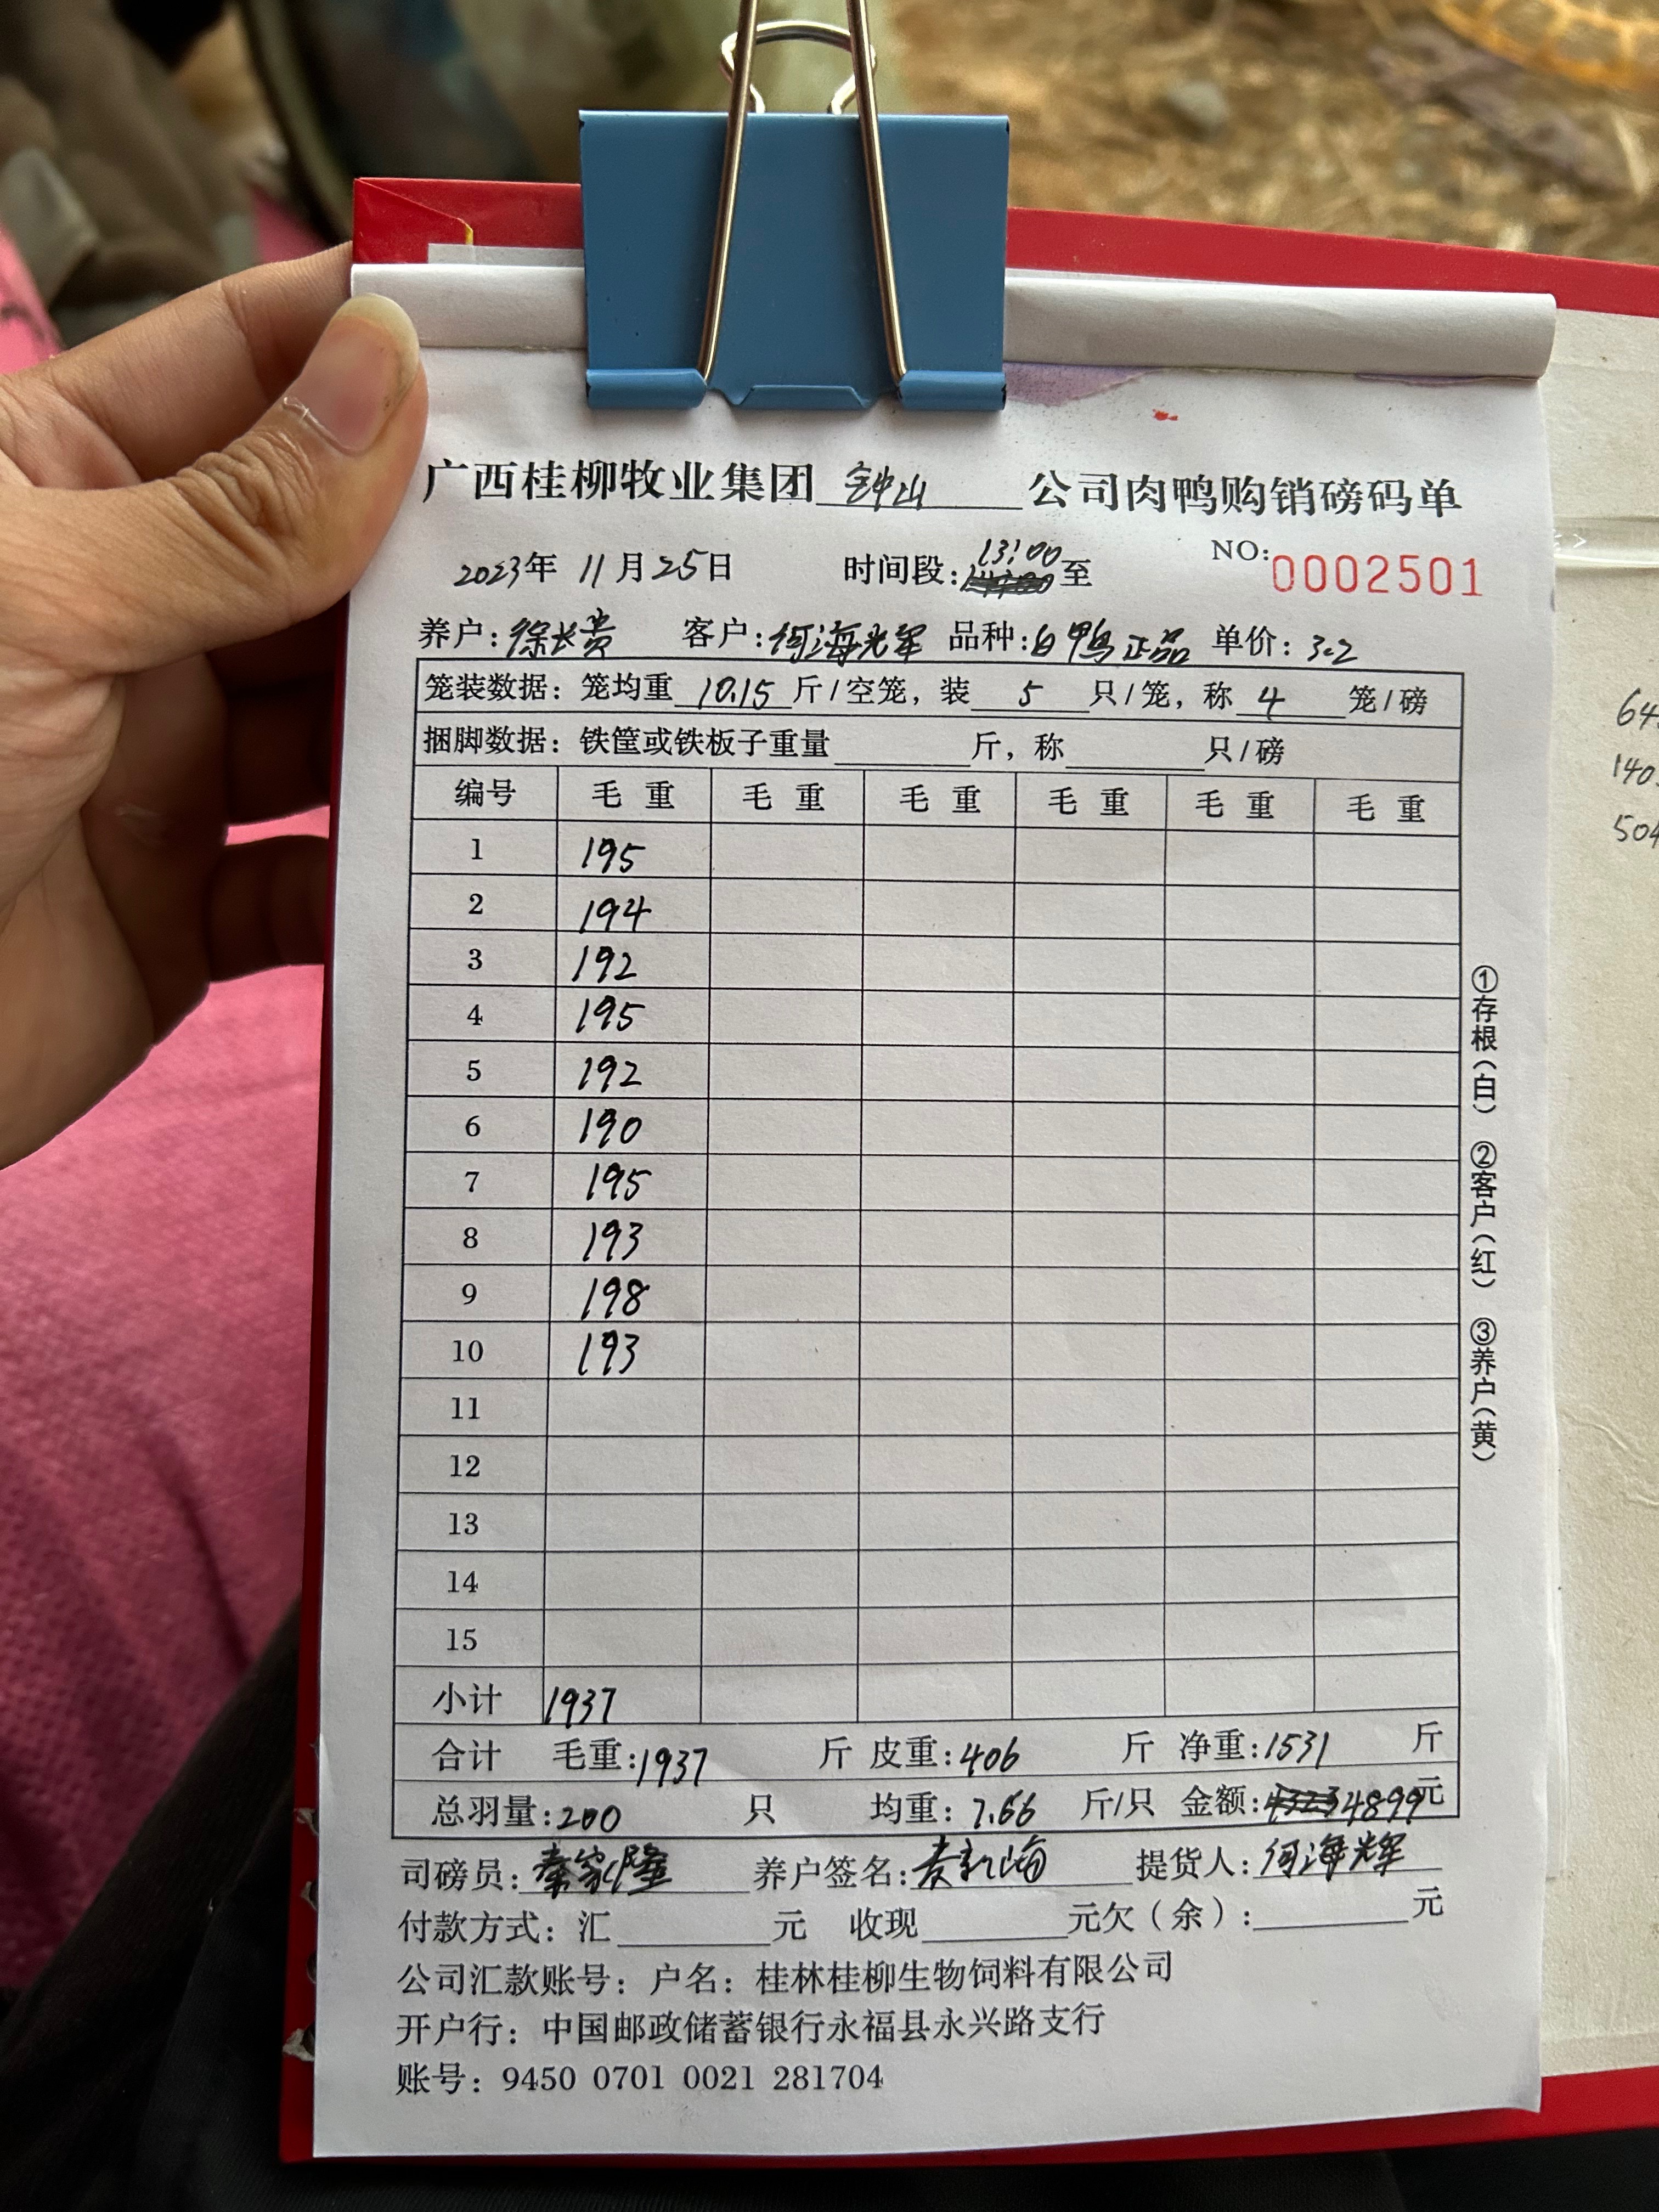 广西桂柳牧业集团 钟山 公司肉鸭购销磅码单
2023年 11月25日 时间段:13:00至 NO:0002501
养户:徐长贵 客户:何海光军 品种:白鸭正品 单价:3.2
笼装数据:笼均重 10.15 斤/空笼,装 5 只/笼,称 4 笼/磅
捆脚数据:铁筐或铁板子重量 斤,称 只/磅
编号 毛重 毛重 毛重 毛重 毛重 毛重
1 195
2 194
3 192
4 195
5 192
6 190
7 195
8 193
9 198
10 193
11
12
13
14
15
小计 1937
合计 毛重:1937 斤 皮重:406 斤 净重:1531 斤
总羽量:200 只 均重:7.66 斤/只 金额:4899元
司磅员:秦家隆 养户签名: 提货人:何海辉
付款方式:汇 元 收现 元欠(余): 元
公司汇款账号:户名:桂林桂柳生物饲料有限公司
开户行:中国邮政储蓄银行永福县永兴路支行
账号:9450 0701 0021 281704
①存根(白) ②客户(红) ③养户(黄)
64
140
504